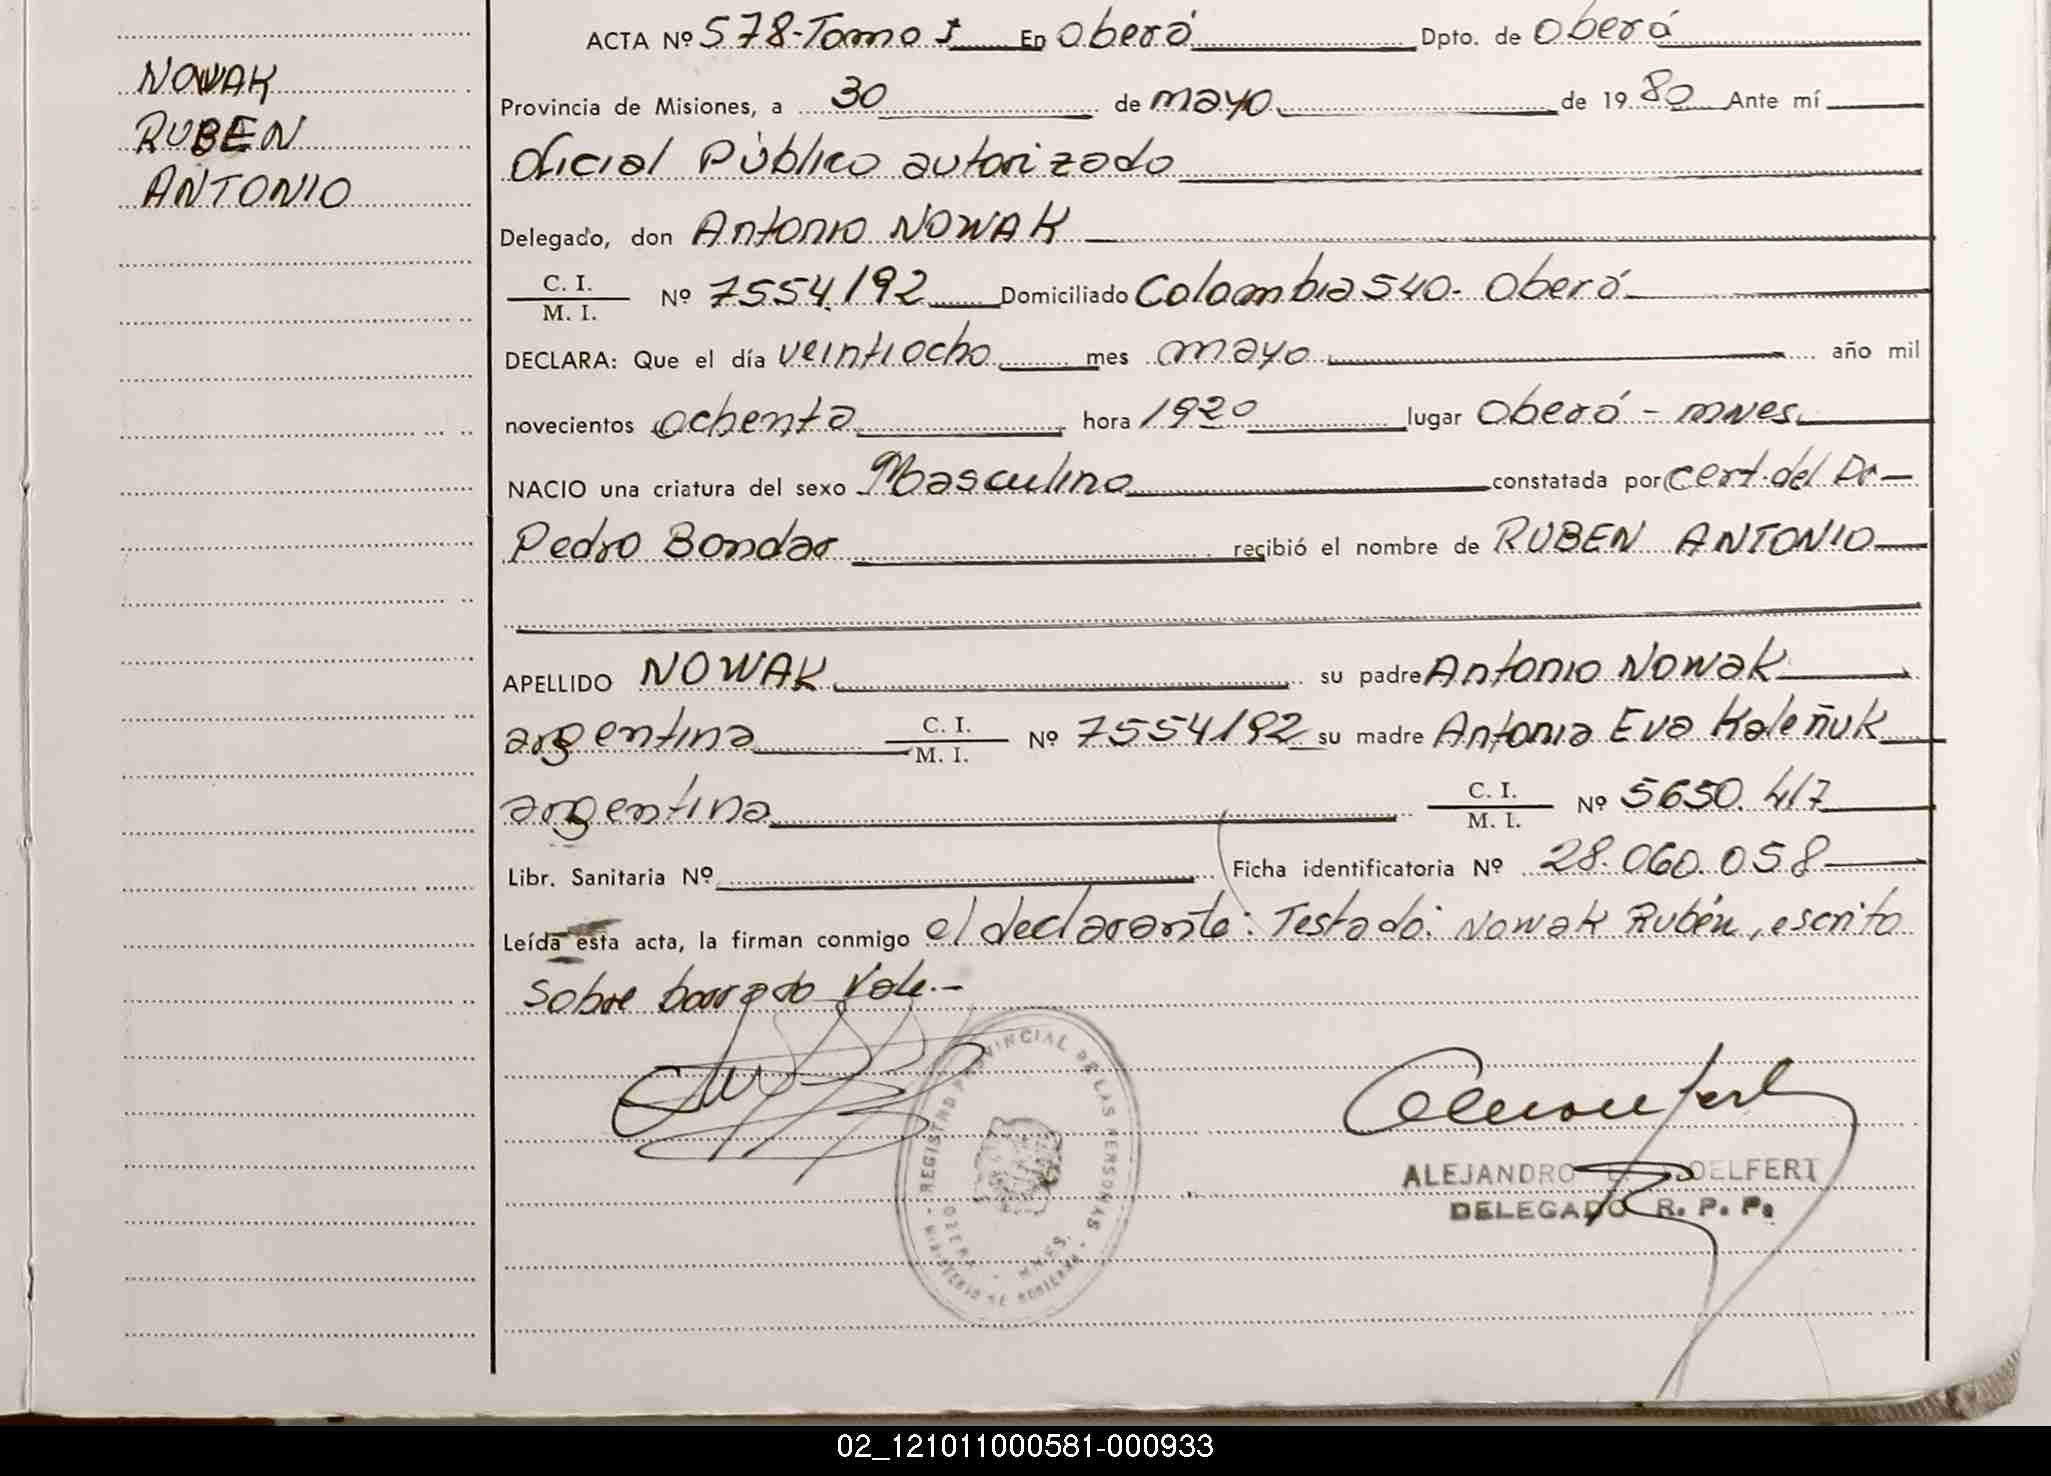 ACTA Nº 578-Tomo I En Oberá Dpto. de Oberá
NOWAK
RUBEN
ANTONIO
Provincia de Misiones, a 30 de mayo de 1980 Ante mí
Oficial Público autorizado
Delegado, don Antonio NOWAK
C. I.
M. I. Nº 7554192 Domiciliado Colombia 540- Oberá
DECLARA: Que el día veintiocho mes mayo año mil
novecientos ochenta hora 1920 lugar Oberá - mnes.
NACIO una criatura del sexo Masculino constatada por cert. del Dr-
Pedro Bondar recibió el nombre de RUBEN ANTONIO
APELLIDO NOWAK su padre Antonio Nowak
argentina C. I. M. I. Nº 7554192 su madre Antonia Eva Kaleñuk
argentina C. I. M. I. Nº 5650.417
Libr. Sanitaria Nº Ficha identificatoria Nº 28.060.058
Leída esta acta, la firman conmigo el declarante: Testado: Nowak Rubén, escrito
sobre borrado Vale.-
REGISTRO PROVINCIAL DE LAS PERSONAS
MINISTERIO DE GOBIERNO
ALEJANDRO OELFERT
DELEGADO R. P. P.
02_121011000581-000933